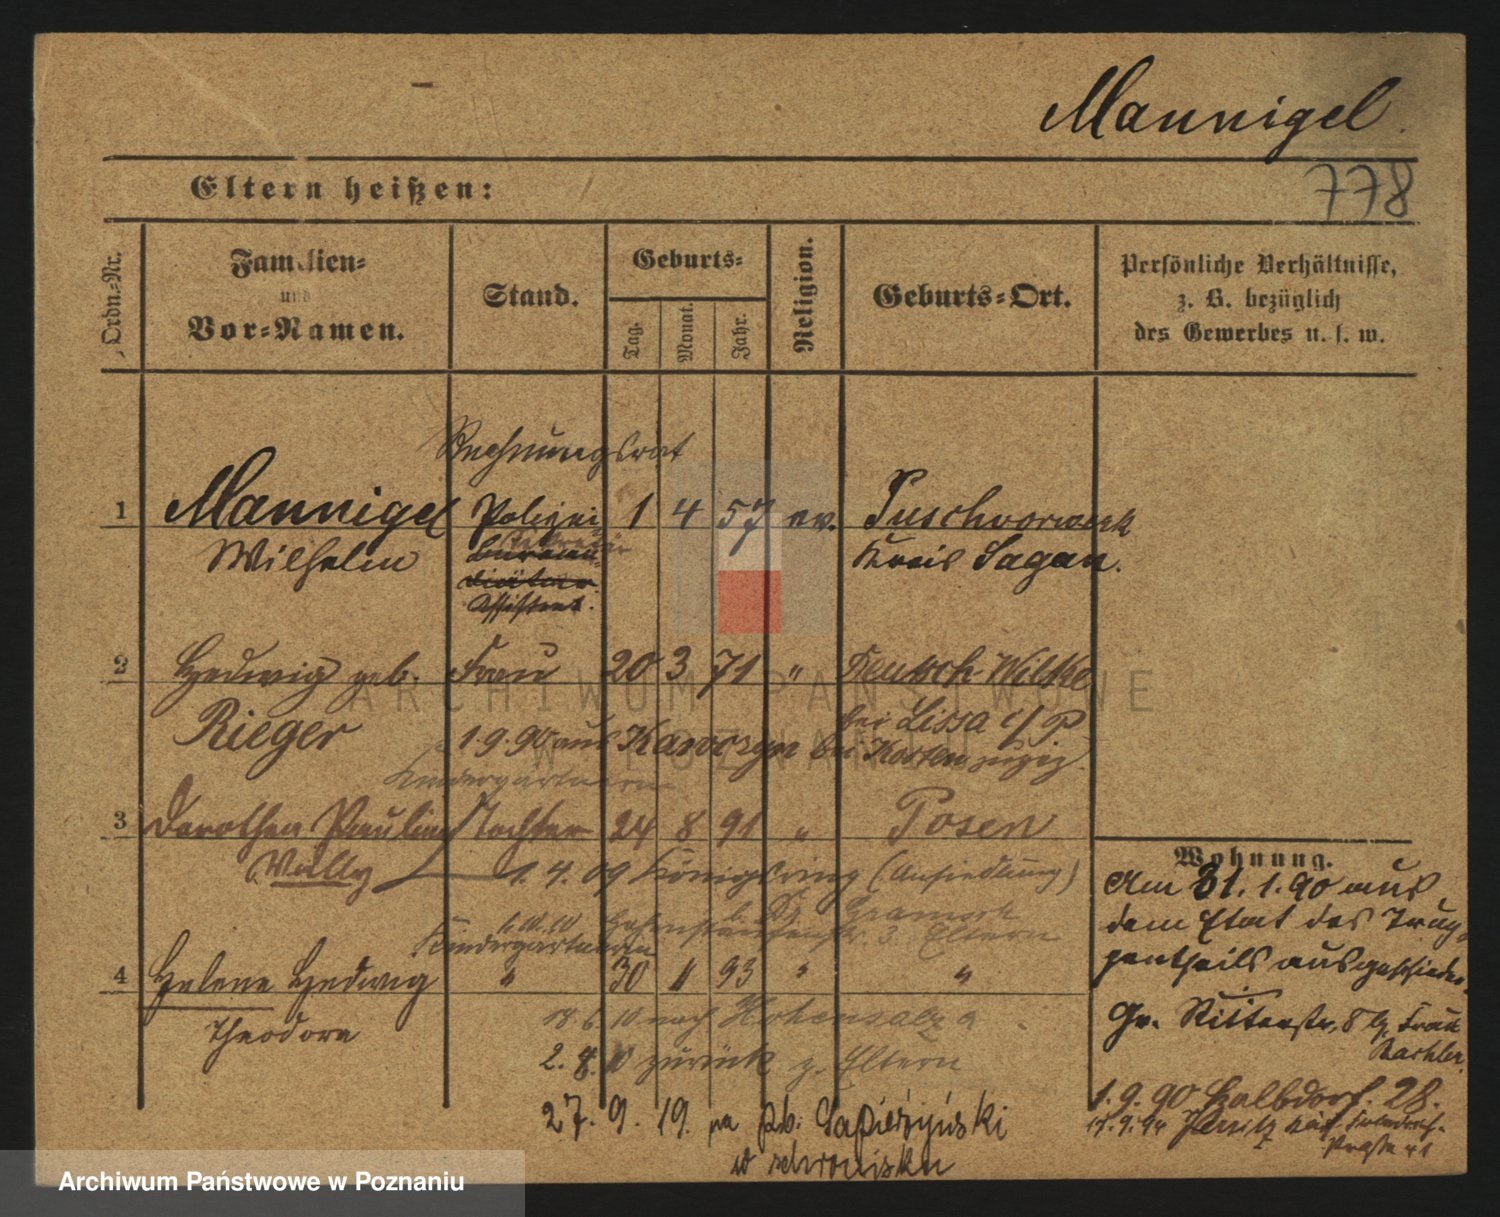 Mannigel.
778
Eltern heißen:
Ordn.-Nr.
Familien-
und
Vor-Namen.
Stand.
Geburts-
Tag.
Monat.
Jahr.
Religion.
Geburts-Ort.
Persönliche Verhältnisse,
z. B. bezüglich
des Gewerbes u. s. w.
Rechnungsrat
1 Mannigel Polizei 1 4 57 ev. Puschvorwerk
Wilhelm Sekretär Kreis Sagan.
Bureau-
Diätar
Assistent.
2 Hedwig geb. Frau 20 3 71 " Deutsch-Wilke
Rieger bei Lissa i/P
1.9.90 aus bei Kosten zugez.
Kindergärtnerin
3 Dorothea Pauline Tochter 24 8 91 " Posen
Wally 1.4.09 Königsring (Ansiedlung)
1.10.10 3. Eltern
Kindergärtnerin
4 Helene Hedwig " 30 11 93 " "
Theodora
18 6 10 nach Hohensalza
2. 8. 10 zurück z. Eltern
27. 9. 19. na Sapieżyński
w schronisku
Wohnung.
Am 31.1.90 aus
dem Etat des Trup-
pentheils ausgeschieden
Gr. Ritterstr. 8 b/ Frau
1.9.90 Halbdorf. 28.
ARCHIWUM PAŃSTWOWE
W POZNANIU
Archiwum Państwowe w Poznaniu